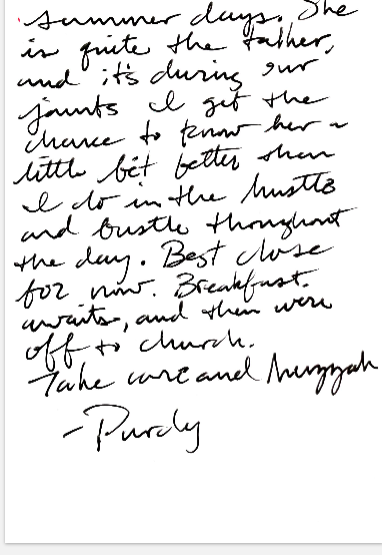 summer days. She
is quite the talker,
and it's during our
jaunts I get the
chance to know her a
little bit better than
I do in the hustle
and bustle throughout
the day. Best close
for now. Breakfast
awaits, and then were
off to church.
Take care and huzzah
-Purdy